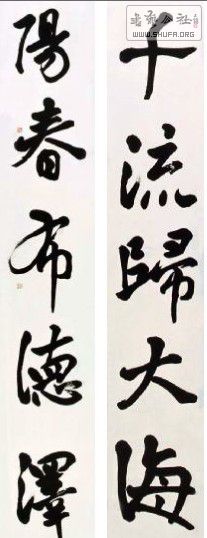 千流歸大海
陽春布德澤
書法公社
WWW.SHUFA.ORG